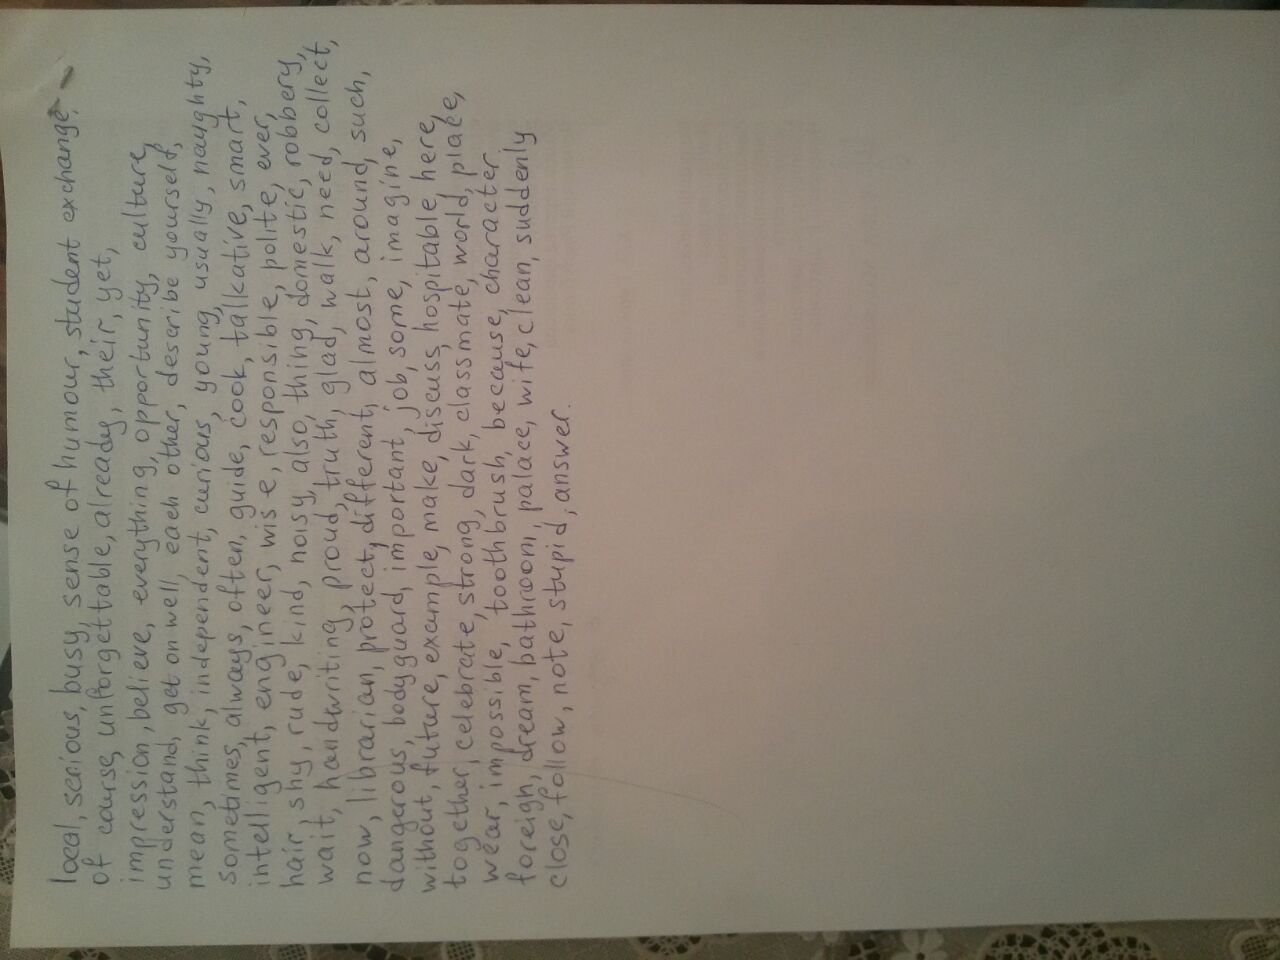 local, serious, busy, sense of humour, student exchange,
of course, unforgettable, already, their, yet,
impression, believe, everything, opportunity, culture,
understand, get on well, each other, describe yourself,
mean, think, independent, curious, young, usually, naughty,
sometimes, always, often, guide, cook, talkative, smart,
intelligent, engineer, wise, responsible, polite, ever,
hair, shy, rude, kind, noisy, also, thing, domestic, robbery,
wait, handwriting, proud, truth, glad, walk, need, collect,
now, librarian, protect, different, almost, around, such,
dangerous, bodyguard, important, job, some, imagine,
without, future, example, make, discuss, hospitable, here,
together, celebrate, strong, dark, classmate, world, place,
wear, impossible, toothbrush, because, character
foreign, dream, bathroom, palace, wife, clean, suddenly
close, follow, note, stupid, answer.